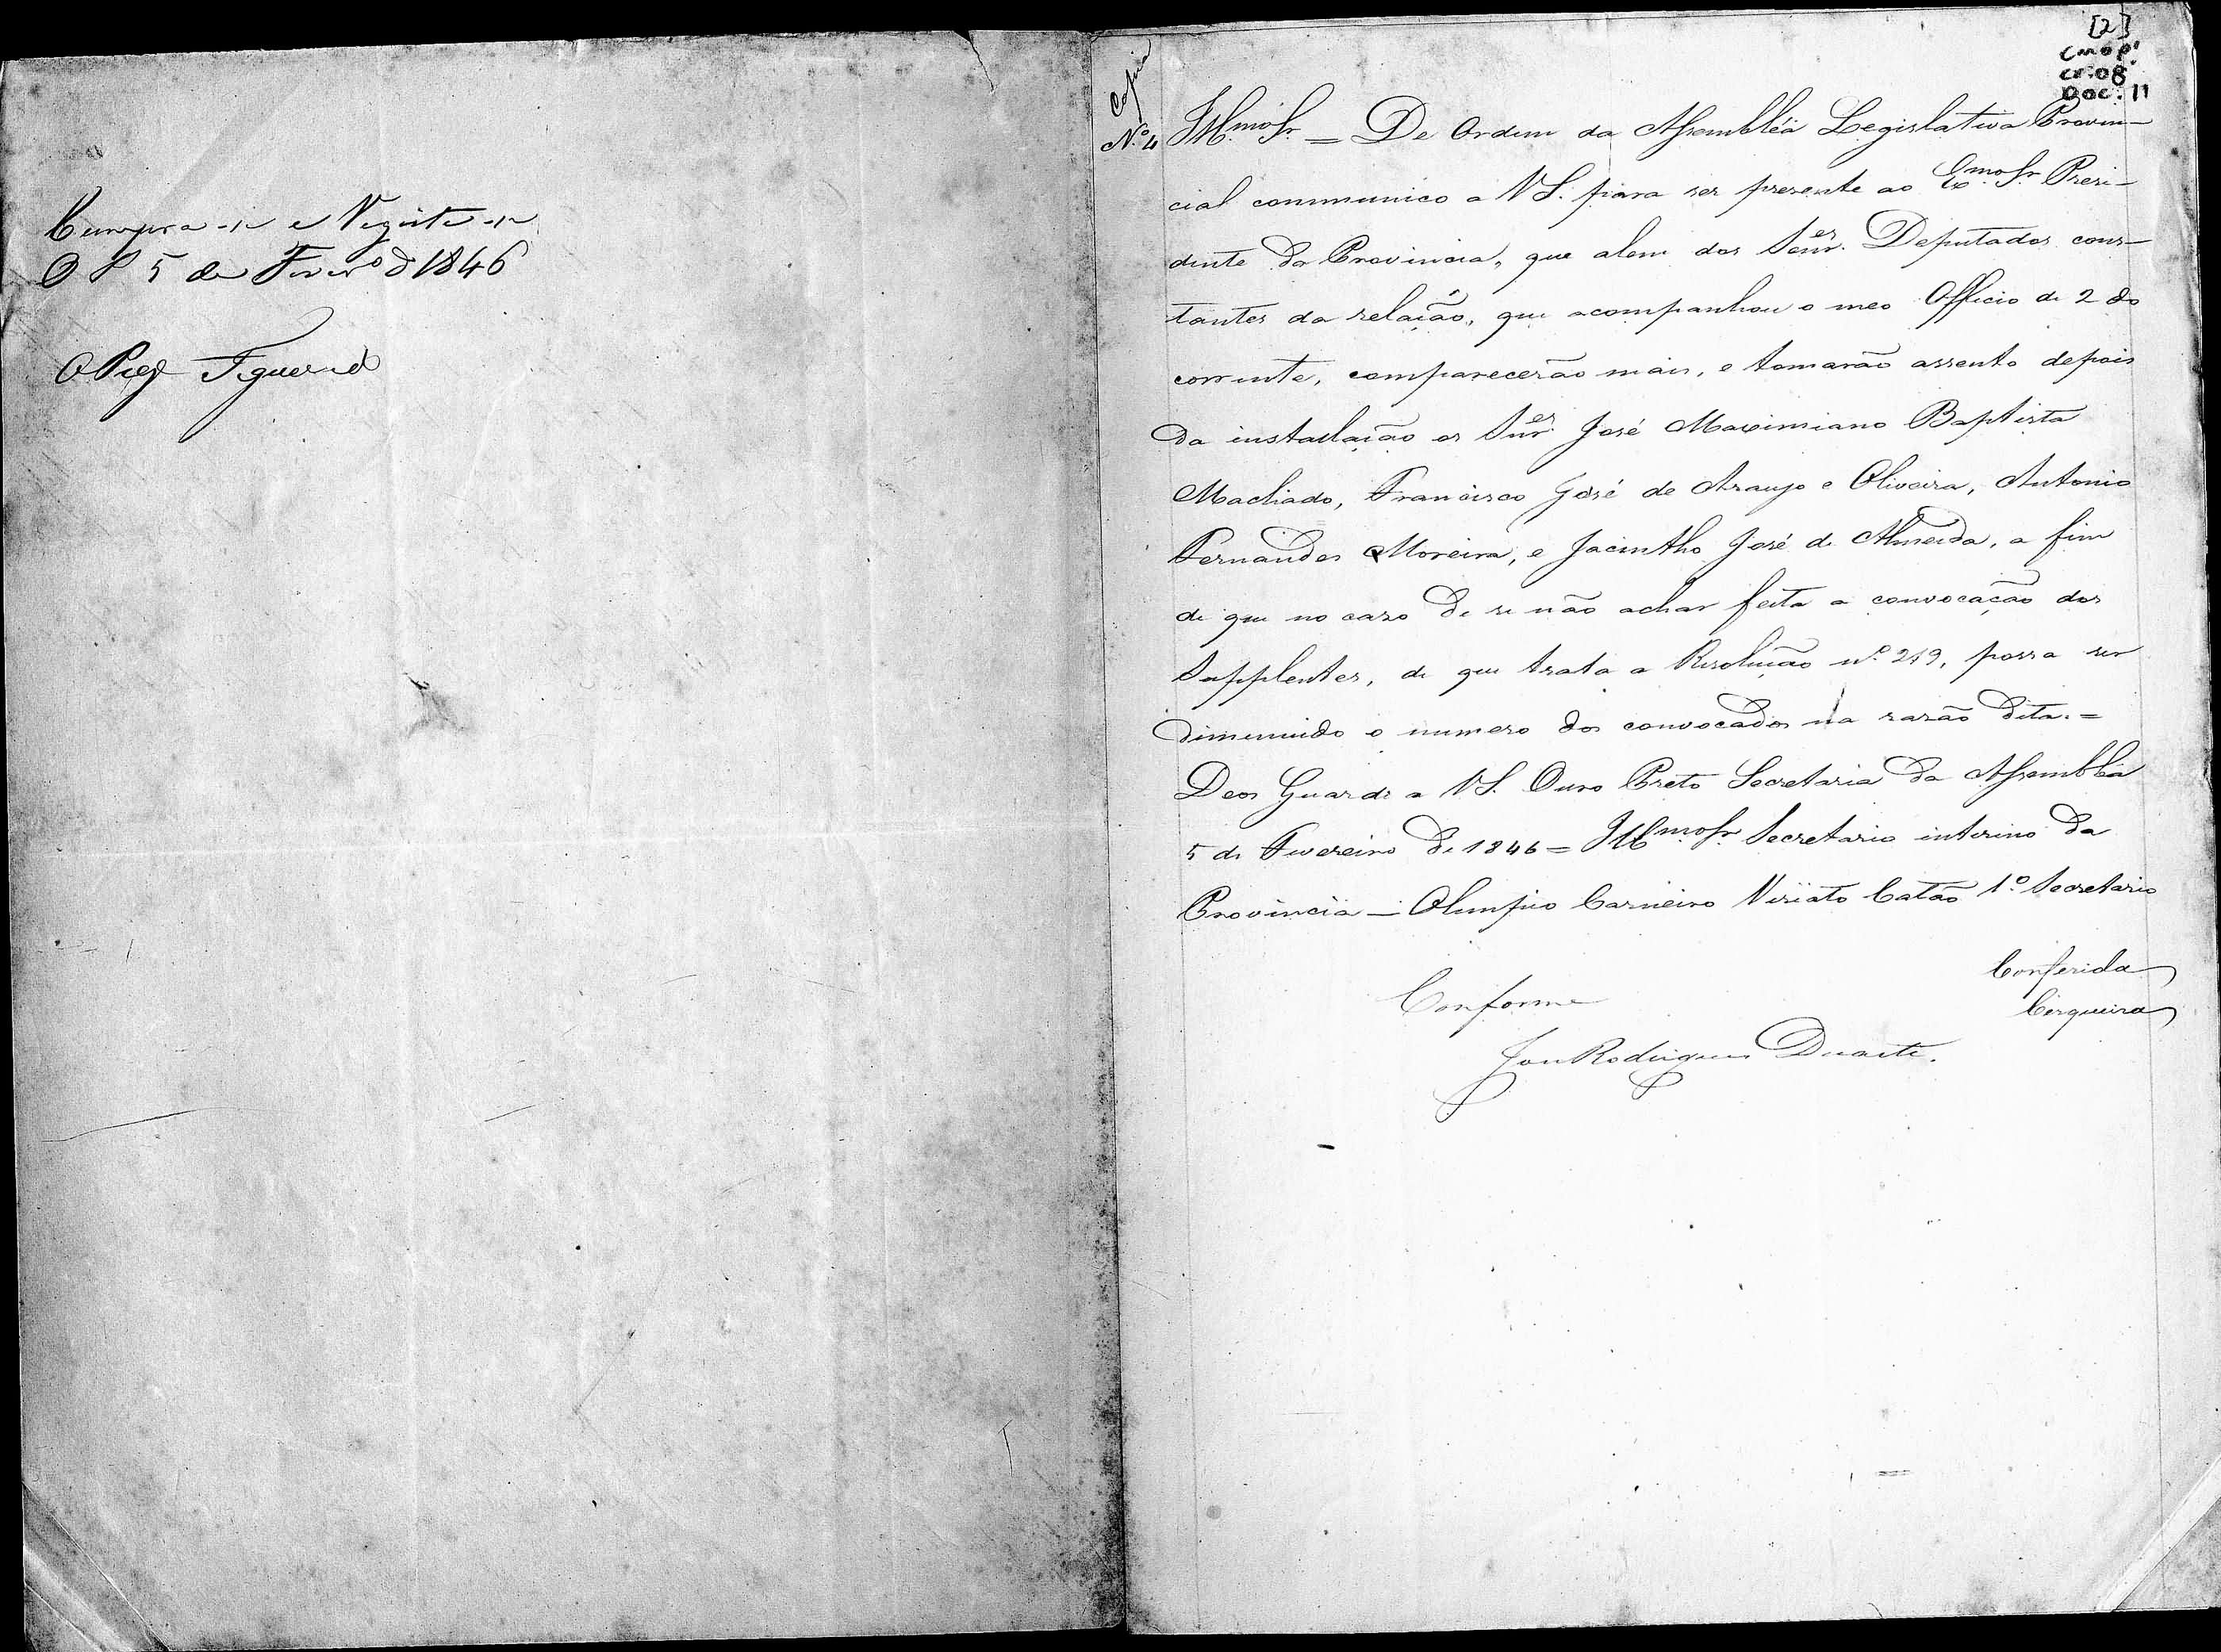 Cumpra-se e Registe-se
O P 5 de Fever.º d 1846
Figueired
[2]
CMOP.
cx.08
Doc. 11
Copia
N.º 4
Ill.mo Sr. = De Ordem da Assembléa Legislativa Provin-
cial communico a V S. para ser presente ao Ex.mo Sr. Presi-
dente da Provincia, que alem dos Senr.es Deputados cons-
tantes da relação, que acompanhou o meo Officio de 2 do
corrente, comparecerão mais, e tomarão assento depois
da installação os Snr.es José Maximiano Baptista
Machado, Francisco José de Araujo e Oliveira, Antonio
Fernandes Moreira, e Jacintho José de Almeida, a fim
de que no caso de se não achar feita a convocação dos
Supplentes, de que trata a Resolução n.º 219, possa ser
diminuido o numero dos convocados na razão dita. =
Deos Guarde a V S. Ouro Preto Secretaria da Assembléa
5 de Fevereiro de 1846 = Ill.mo Sr. Secretario interino da
Provincia — Olimpio Carneiro Viriato Catão 1.º Secretario
Conferida
Cerqueira
Conforme
Rodrigues Duarte.